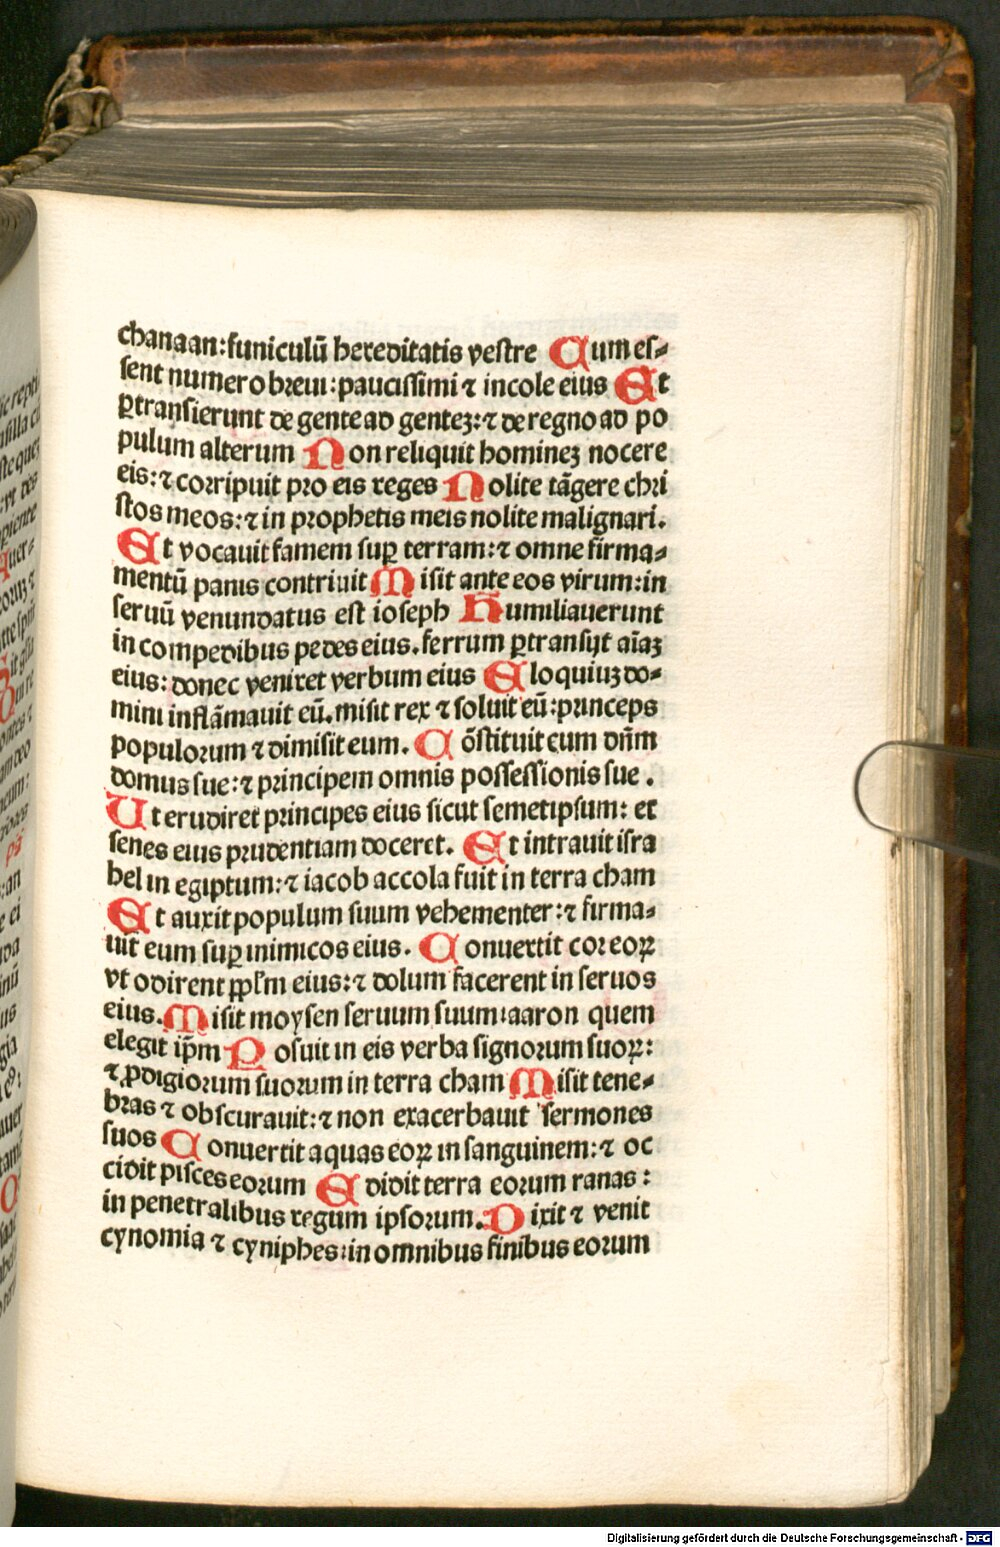 chanaan:funiculū hereditatis vestre Cum es⸗
sent numero breui:paucissimi ⁊ incole eius Et
ꝑtransierunt de gente ad gentez:⁊ de regno ad po
pulum alterum Non reliquit hominez nocere
eis:⁊ corripuit pro eis reges Nolite tāgere chri
stos meos:⁊ in prophetis meis nolite malignari.
Et vocauit famem suꝑ terram:⁊ omne firma⸗
mentū panis contriuit Misit ante eos virum:in
seruū venundatus est ioseph Humiliauerunt
in compedibus pedes eius.ferrum ꝑtransijt aīaz
eius:donec veniret verbum eius Eloquiuz do⸗
mini inflāmauit eū.misit rex ⁊ soluit eū:princeps
populorum ⁊ dimisit eum. Cōstituit eum dn̄m
domus sue:⁊ principem omnis possessionis sue.
Ut erudiret principes eius sicut semetipsum: et
senes eius prudentiam doceret. Et intrauit isra
hel in egiptum:⁊ iacob accola fuit in terra cham
Et auxit populum suum vehementer:⁊ firma⸗
uit eum suꝑ inimicos eius. Conuertit cor eoꝝ
vt odirent ppl̄m eius:⁊ dolum facerent in seruos
eius. Misit moysen seruum suum:aaron quem
elegit ip̄m Posuit in eis verba signorum suoꝝ:
⁊ ꝓdigiorum suorum in terra cham Misit tene⸗
bras ⁊ obscurauit:⁊ non exacerbauit sermones
suos Conuertit aquas eoꝝ in sanguinem:⁊ oc
cidit pisces eorum Edidit terra eorum ranas:
in penetralibus regum ipsorum. Dixit ⁊ venit
cynomia ⁊ cyniphes:in omnibus finibus eorum
Digitalisierung gefördert durch die Deutsche Forschungsgemeinschaft - DFG